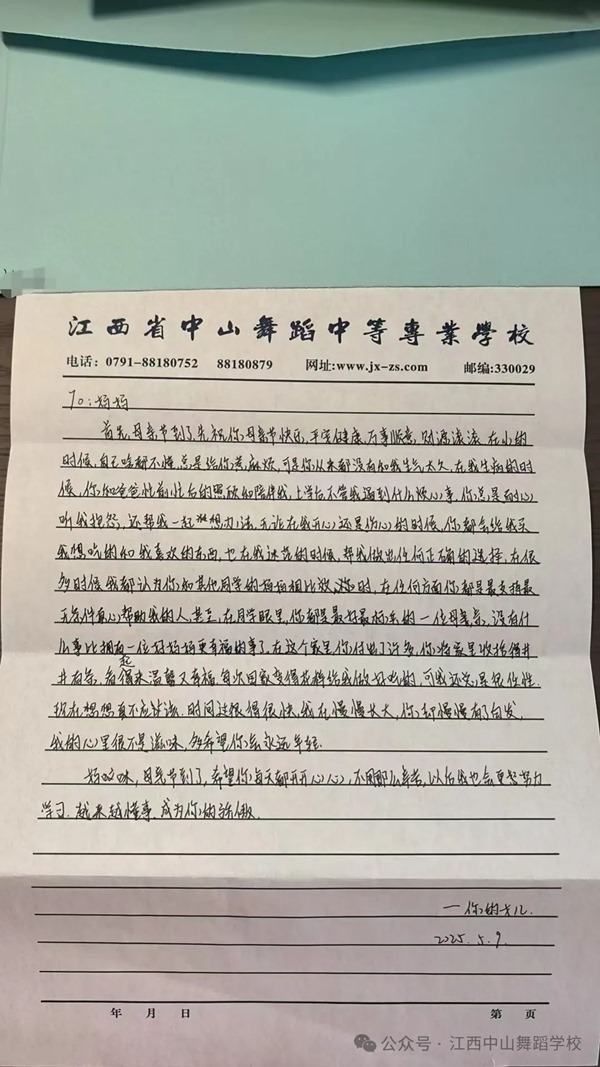 江西省中山舞蹈中等專業學校
电话：0791-88180752 88180879 网址:www.jx-zs.com 邮编:330029
To：妈妈
首先,母亲节到了,先祝你母亲节快乐,平安健康,万事顺意,财源滚滚,在小的
时候,自己啥都不懂,总是给你惹麻烦,可是你从来都没有和我生气太久,在我生病的时
候,你和爸爸忙前忙后的照顾和陪伴我,上学后,不管我遇到什么烦心事,你总是耐心
听我抱怨,还帮我一起想办法,无论在我开心还是伤心的时候,你都会给我买
我想吃的和我喜欢的东西,也在我迷茫的时候,帮我做出任何正确的选择,在很
多时候我都认为你和其他同学的妈妈相比较时,在任何方面你都是最支持最
无条件真心帮助我的人,甚至,在同学眼里,你都是最好最 的一位母亲,没有什
么事比拥有一位好妈妈更幸福的事了,在这个家里你付出了许多,你将家里收拾得井
井有条,看起来温馨又幸福,每次回家变得花样给我做好吃的,可我还总是很任性
现在想想真不应该,时间过很得很快,我在慢慢长大,你却慢慢有了白发,
我的心里很不是滋味,多希望你会永远年轻.
妈妈,母亲节到了,希望你每天都开开心心,不用那么辛苦,以后我也会更努力
学习,越来越懂事,成为你的骄傲.
—你的女儿.
2025.5.9.
年 月 日 第 页
公众号 · 江西中山舞蹈学校